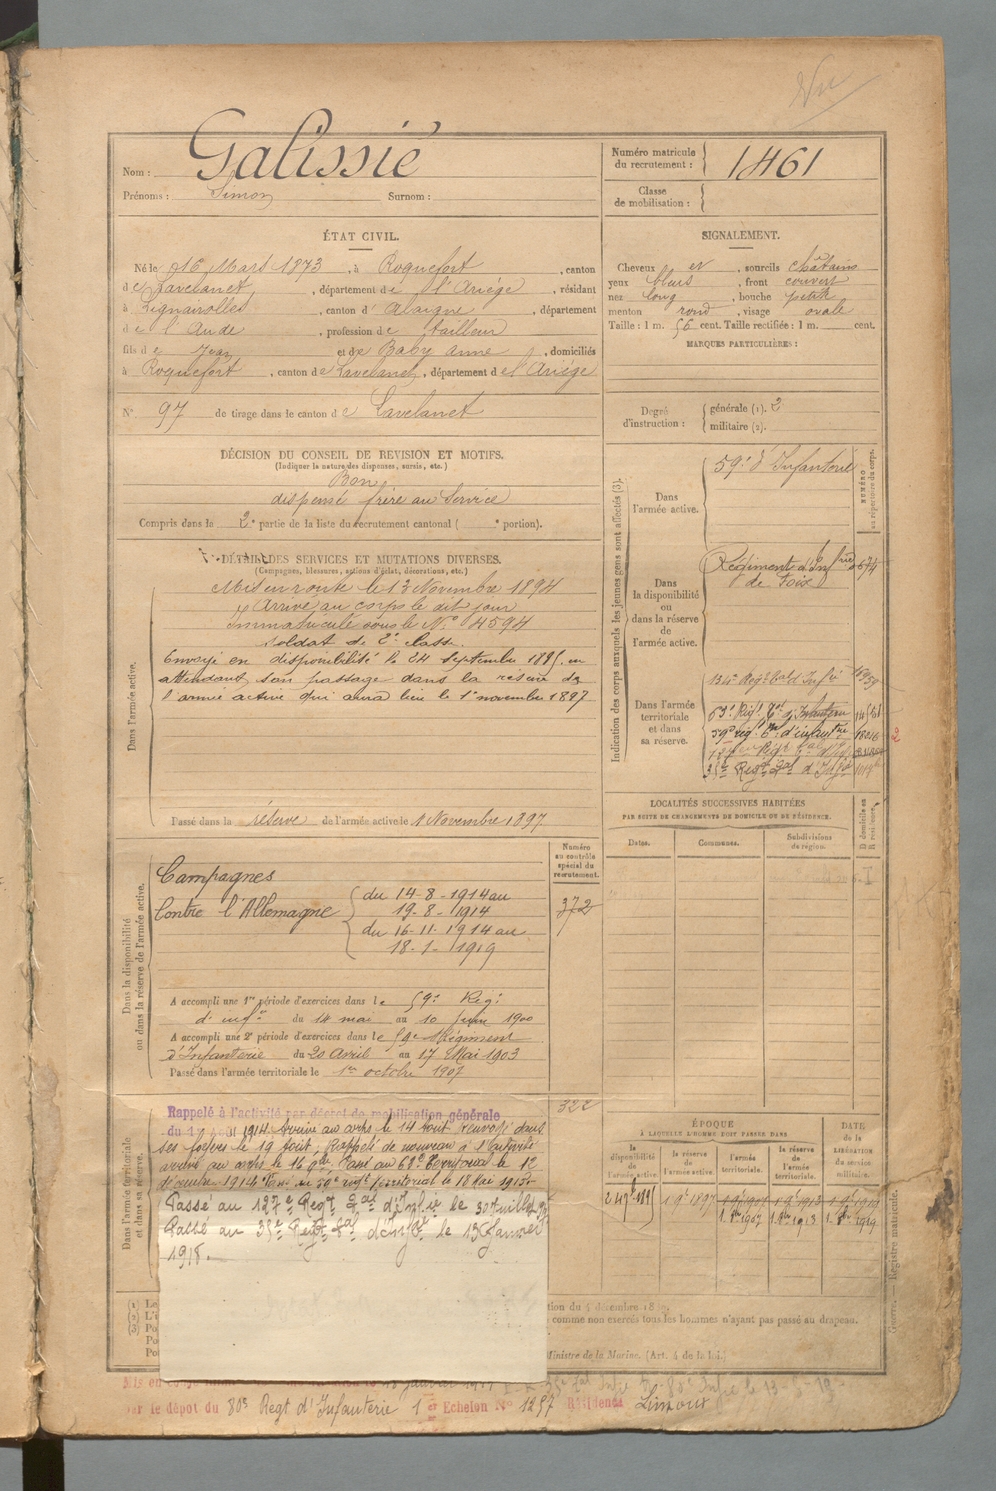 Vu
Nom : Galissié
Prénoms : Simon Surnom :
Numéro matricule
du recrutement : 1461
Classe
de mobilisation :
ÉTAT CIVIL.
Né le 16 Mars 1873, à Roquefort, canton
de Lavelanet, département de l'Ariège, résidant
à Lignairolles, canton d'Alaigne, département
de l'Aude, profession de tailleur
fils de Jean et de Baby Anne, domiciliés
à Roquefort, canton de Lavelanet, département de l'Ariége
N° 97 de tirage dans le canton de Lavelanet
SIGNALEMENT.
Cheveux et, sourcils châtains
yeux bleus, front couvert
nez long, bouche petite
menton rond, visage ovale
Taille : 1 m. 56 cent. Taille rectifiée : 1 m. cent.
MARQUES PARTICULIÈRES :
Degré
d'instruction :
générale (1). 2
militaire (2).
DÉCISION DU CONSEIL DE REVISION ET MOTIFS.
(Indiquer la nature des dispenses, sursis, etc.)
Bon
dispensé frère au Service
Compris dans la 2e partie de la liste du recrutement cantonal ( e portion).
DÉTAIL DES SERVICES ET MUTATIONS DIVERSES.
(Campagnes, blessures, actions d'éclat, décorations, etc.)
Dans l'armée active.
Mis en route le 13 Novembre 1894
Arrivé au corps le dit jour
Immatriculé sous le N° 4594
Soldat de 2e classe
Envoyé en disponibilité le 24 Septembre 1895 en
attendant son passage dans la réserve de
l'armée active qui aura lieu le 1er novembre 1897
Passé dans la réserve de l'armée active le 1 Novembre 1897
Indication des corps auxquels les jeunes gens sont affectés (3).
Dans
l'armée active.
59e d'Infanterie
NUMÉRO
au répertoire du corps.
Dans
la disponibilité
ou
dans la réserve
de
l'armée active.
Régiment d'Infrie
de Foix
Dans l'armée
territoriale
et dans
sa réserve.
134e Régt tal d'Infie
59e régt tal d'infanterie
127e Régt tal d'Infie
35e Regt tal d'Infie
2
LOCALITÉS SUCCESSIVES HABITÉES
PAR SUITE DE CHANGEMENTS DE DOMICILE OU DE RÉSIDENCE.
Dates.
Communes.
Subdivisions
de région.
D domicile ou
R résidence.
Dans la disponibilité
ou dans la réserve de l'armée active.
Numéro
au contrôle
spécial du
recrutement.
372
Campagnes
Contre l'Allemagne
du 14-8-1914 au
19-8-1914
du 16-11-1914 au
18-1-1919
A accompli une 1re période d'exercices dans le 59e Régt
d'infie du 14 mai au 10 Juin 1900
A accompli une 2e période d'exercices dans le 59e Régiment
d'Infanterie du 20 Avril au 17 Mai 1903
Passé dans l'armée territoriale le 1er octobre 1907
322
Dans l'armée territoriale
et dans sa réserve.
Rappelé à l'activité par décret de mobilisation générale
du 1er Août 1914. Arrivé au corps le 14 Août renvoyé dans
ses foyers le 19 Août, Rappelé de nouveau à l'activité
arrivé au corps le 16 9bre. Passé au Territorial le 12
1914 Passé au 59e régt territorial le 18 Mai 1915.
Passé au 127e Regt tal d'Infie le 30 Juillet
Passé au 35e Regt tal d'Infie le 13 Janvier
1918.
ÉPOQUE
À LAQUELLE L'HOMME DOIT PASSER DANS
la
disponibilité
de
l'armée active
la réserve
de
l'armée active.
l'armée
territoriale.
la réserve
de
l'armée
territoriale.
DATE
de la
LIBÉRATION
du service
militaire.
24 7bre 1895
1 9bre 1897
1 9bre 1907
1 9bre 1913
1 9bre 1919
1. 8bre 1907
1. 8bre 1913
1. 8bre 1919
(1) Le
(2) L'i
(3) Po
Po
Po
tion du 5 décembre 18
comme non exercés tous les hommes n'ayant pas passé au drapeau.
Ministre de la Marine. (Art. 4 de la loi.)
Guerre. — Registre matricule.
par le dépôt du 80e Regt d'Infanterie 1er Echelon N° 1257 Résidence Limoux